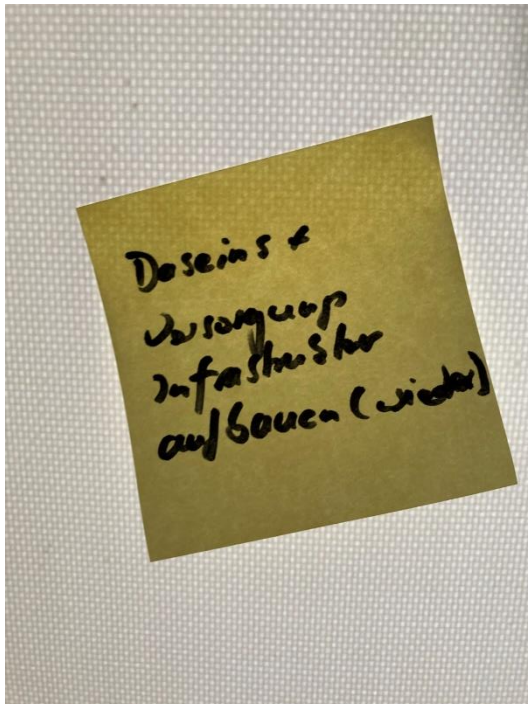 Daseins +
Versorgung
Infrastruktur
aufbauen (wieder)